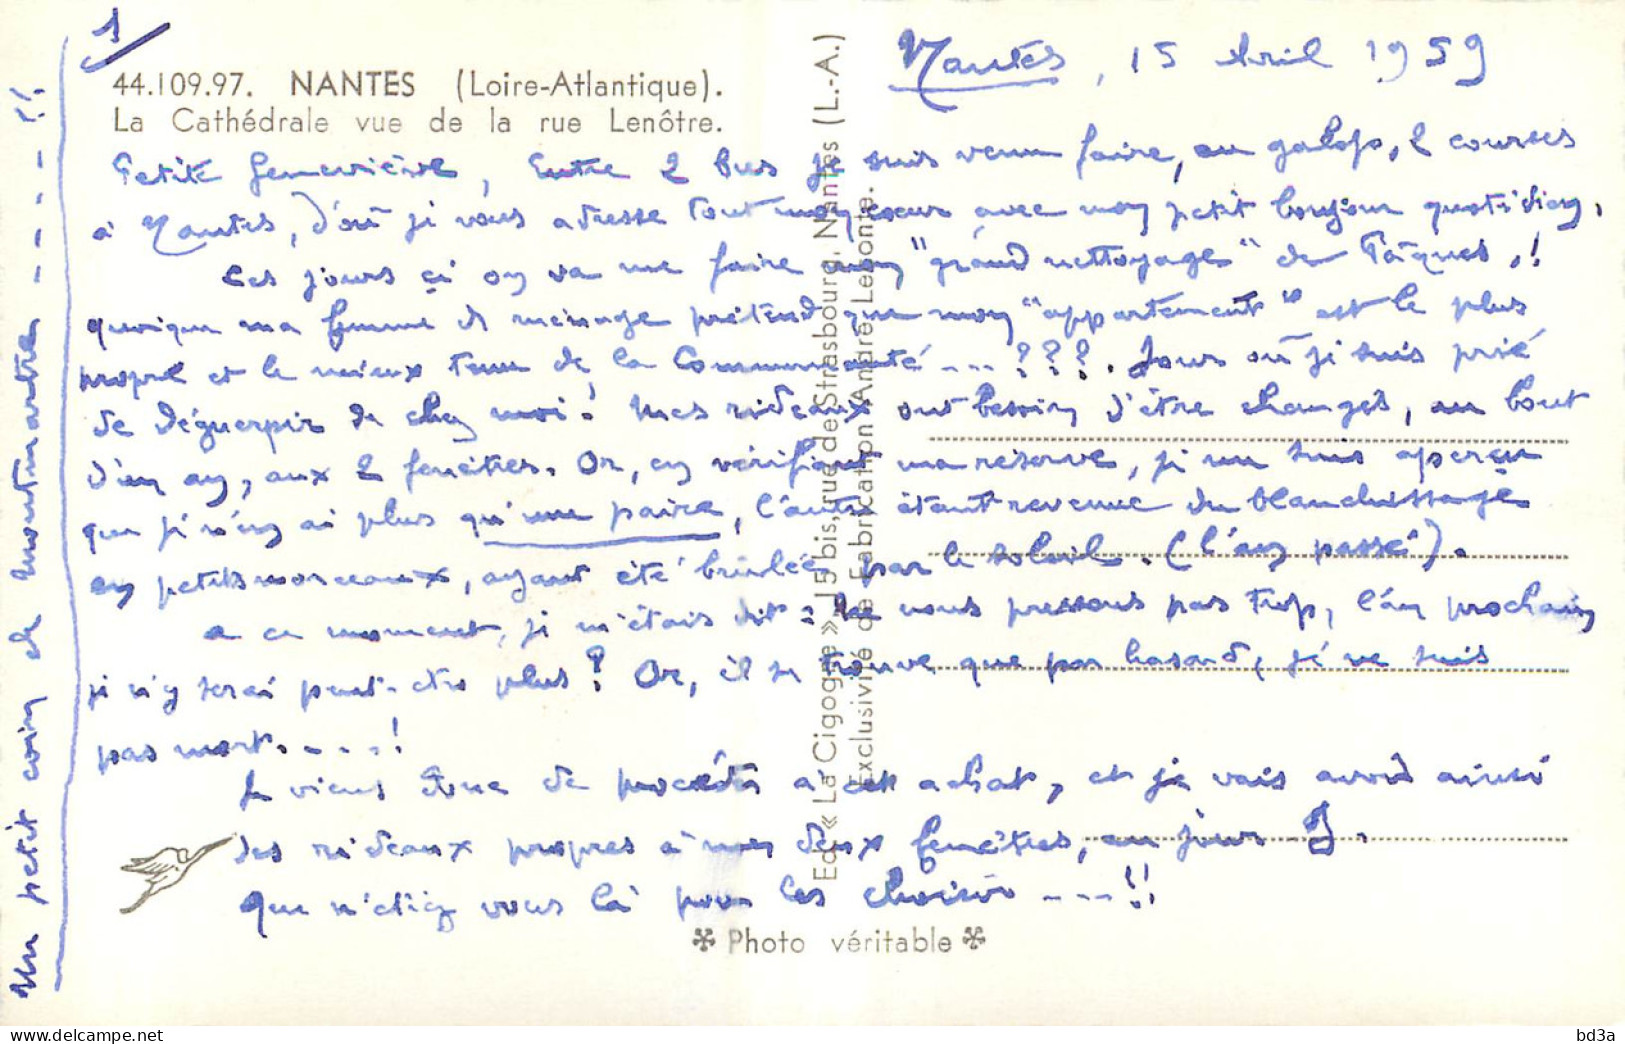 1
44.109.97. NANTES (Loire-Atlantique).
La Cathédrale vue de la rue Lenôtre.
Nantes, 15 Avril 1959
Petite Geneviève, Entre 2 bus je suis venu faire, au galop, 2 courses
à Nantes, d'où je vous adresse tout mon cœur avec mon petit bonjour quotidien.
Ces jours ci on va me faire mon "grand nettoyage" de Pâques,!
quoique ma femme de ménage prétend que mon "appartement" est le plus
propre et le mieux tenu de la Communauté ---???. Jour où je suis prié
de déguerpir de chez moi! Mes rideaux ont besoin d'être changés, au bout
d'un an, aux 2 fenêtres. Or, en vérifiant ma réserve, je me suis aperçu
que je n'en ai plus qu'une paire, l'autre étant revenue du blanchissage
en petits morceaux, ayant été brûlée par le soleil. (l'an passé).
A ce moment, je m'étais dit: Ne nous pressons pas trop, l'an prochain
je n'y serai peut-être plus? Or, il se trouve que par hasard, je ne suis
pas mort.----!
Je viens donc de procéder à cet achat, et je vais avoir ainsi
des rideaux propres à mes deux fenêtres, au jour J.
Que n'étiez vous là pour les choisir ---!!
Un petit coin de Montmartre ----!!
Ed. « La Cigogne » 15 bis, rue de Strasbourg, Nantes (L.-A.)
Exclusivité de Fabrication André Leconte.
Photo véritable
bd3a